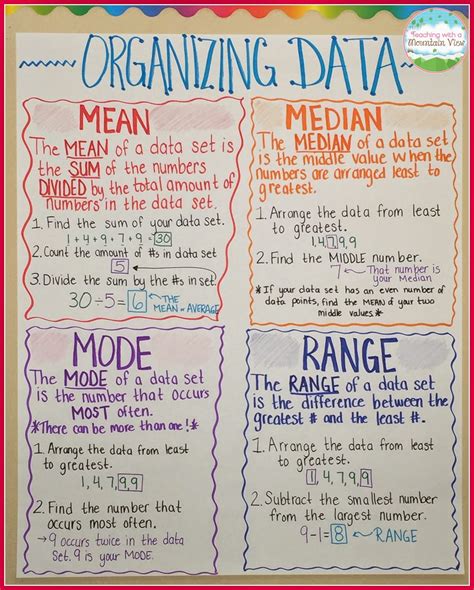 Teaching with a
Mountain View
ORGANIZING DATA
MEAN
The MEAN of a data set is
the SUM of the numbers
DIVIDED by the total amount of
numbers in the data set.
1. Find the sum of your data set.
1+4+9+7+9=30
2. Count the amount of #s in data set
5
3. Divide the sum by the #s in set.
30÷5=6 THE
MEAN or AVERAGE
MEDIAN
The MEDIAN of a data set
is the middle value when the
numbers are arranged least to
greatest.
1. Arrange the data from least
to greatest.
1,4,7,9,9
2. Find the MIDDLE number.
7 That number is
your Median
*If your data set has an even number of
data points, find the MEAN of your two
middle values.*
MODE
The MODE of a data set
is the number that occurs
MOST often.
*There can be more than one!*
1. Arrange the data from least
to greatest.
1, 4, 7, 9, 9
2. Find the number that
occurs most often.
→9 occurs twice in the data
Set. 9 is your MODE.
RANGE
The RANGE of a data set
is the difference between the
greatest # and the least #.
1. Arrange the data from least
to greatest.
1, 4, 7, 9, 9
2. Subtract the smallest number
from the largest number.
9-1=8 RANGE